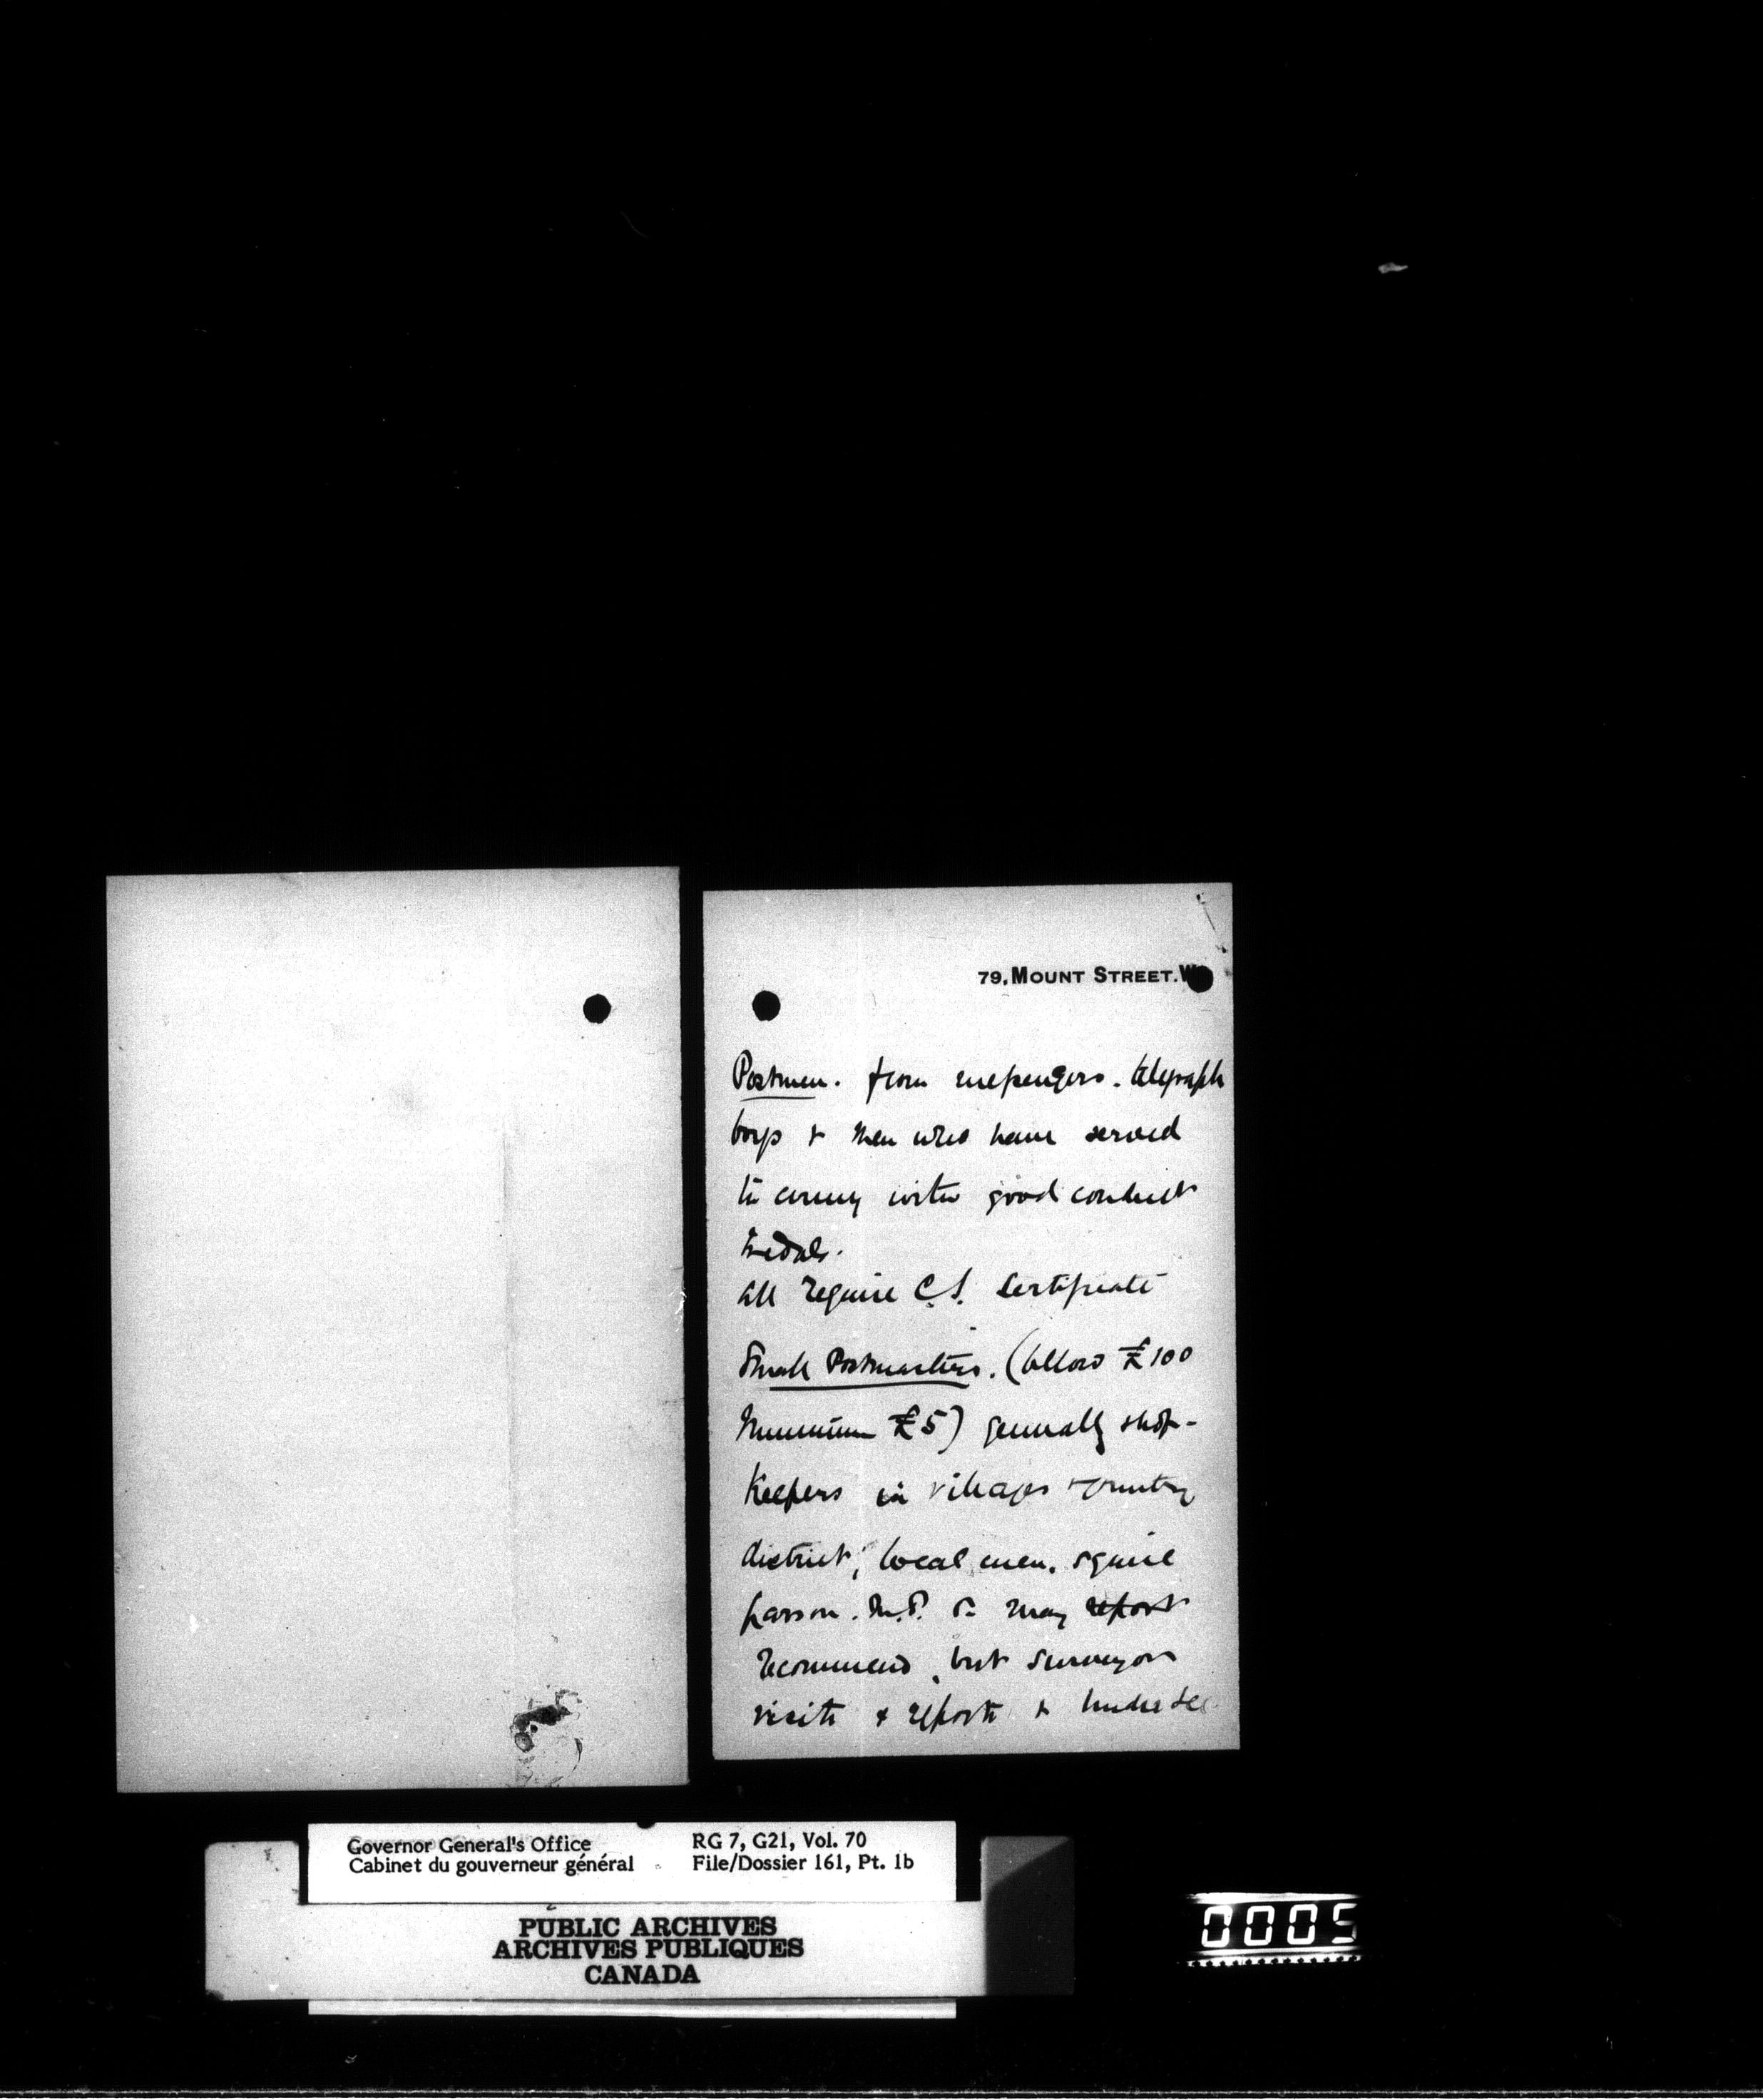 79, MOUNT STREET. W
Postmen. from messengers. telegraph
boys & men who have served
in army with good conduct
medals.
all require C.S. Certificate
Small Postmasters. (below £100
Minimum £5) generally shop-
keepers in villages & country
district, local men. squire
parson. M.P. &c may report
recommend, but surveyor
visits & reports & Under Sec
Governor General's Office
Cabinet du gouverneur général
RG 7, G21, Vol. 70
File/Dossier 161, Pt. 1b
PUBLIC ARCHIVES
ARCHIVES PUBLIQUES
CANADA
0005